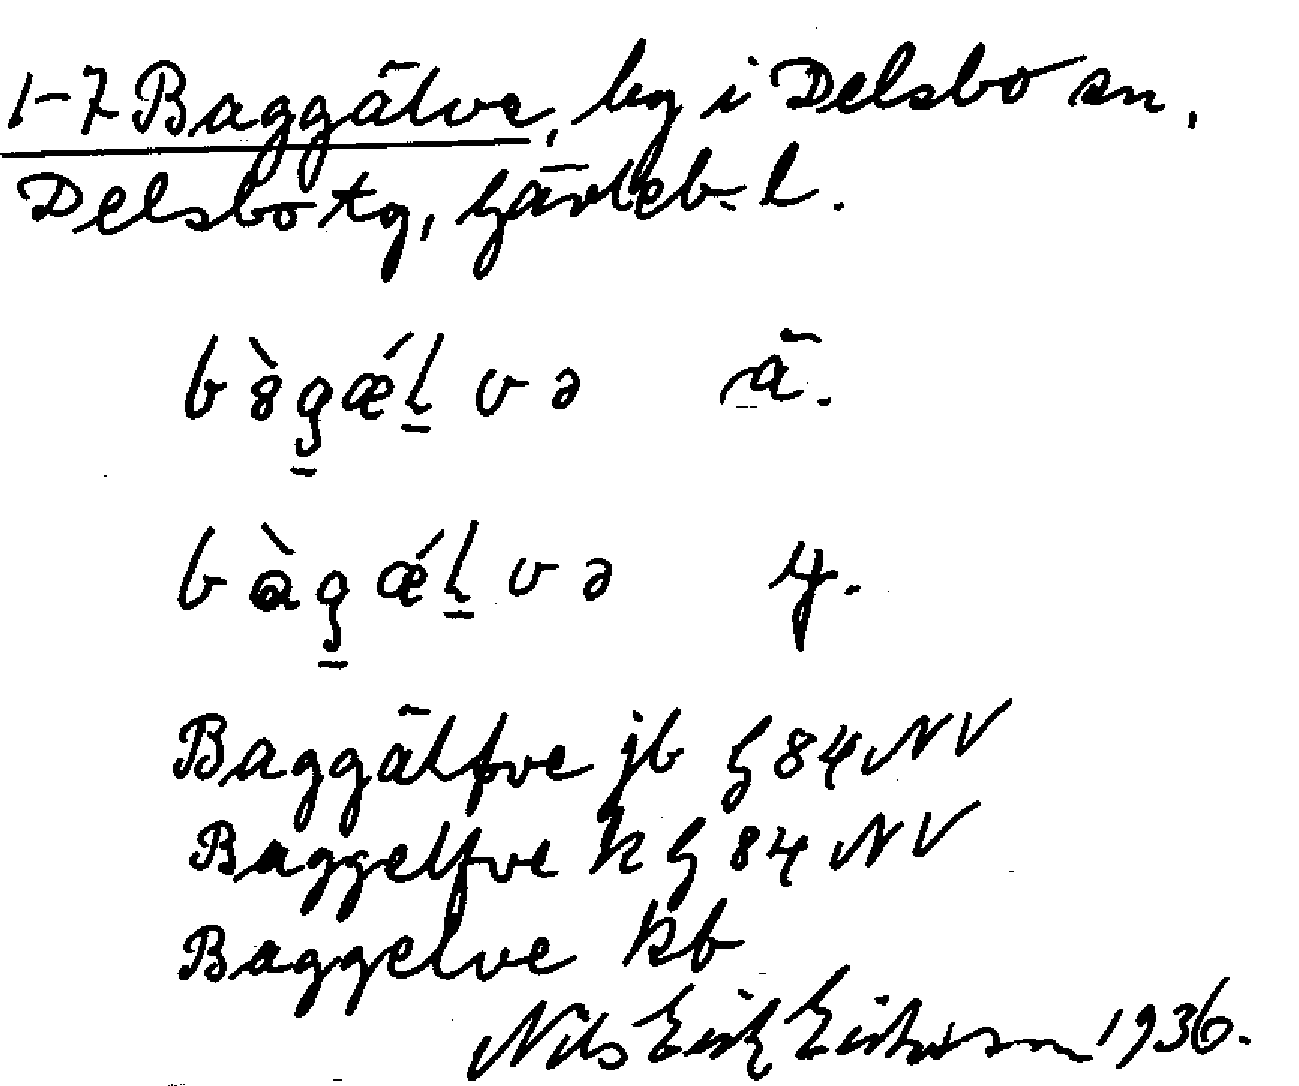 1-7 Baggälve, by i Delsbo sn,
Delsbo tg, Gävleb. l.
bàgǽlvə ä.
bàgǽlvə y.
Baggälfve jb G 84 NV
Baggelfve k G 84 NV
Baggelve kb
Nils Erik Eriksson 1936.